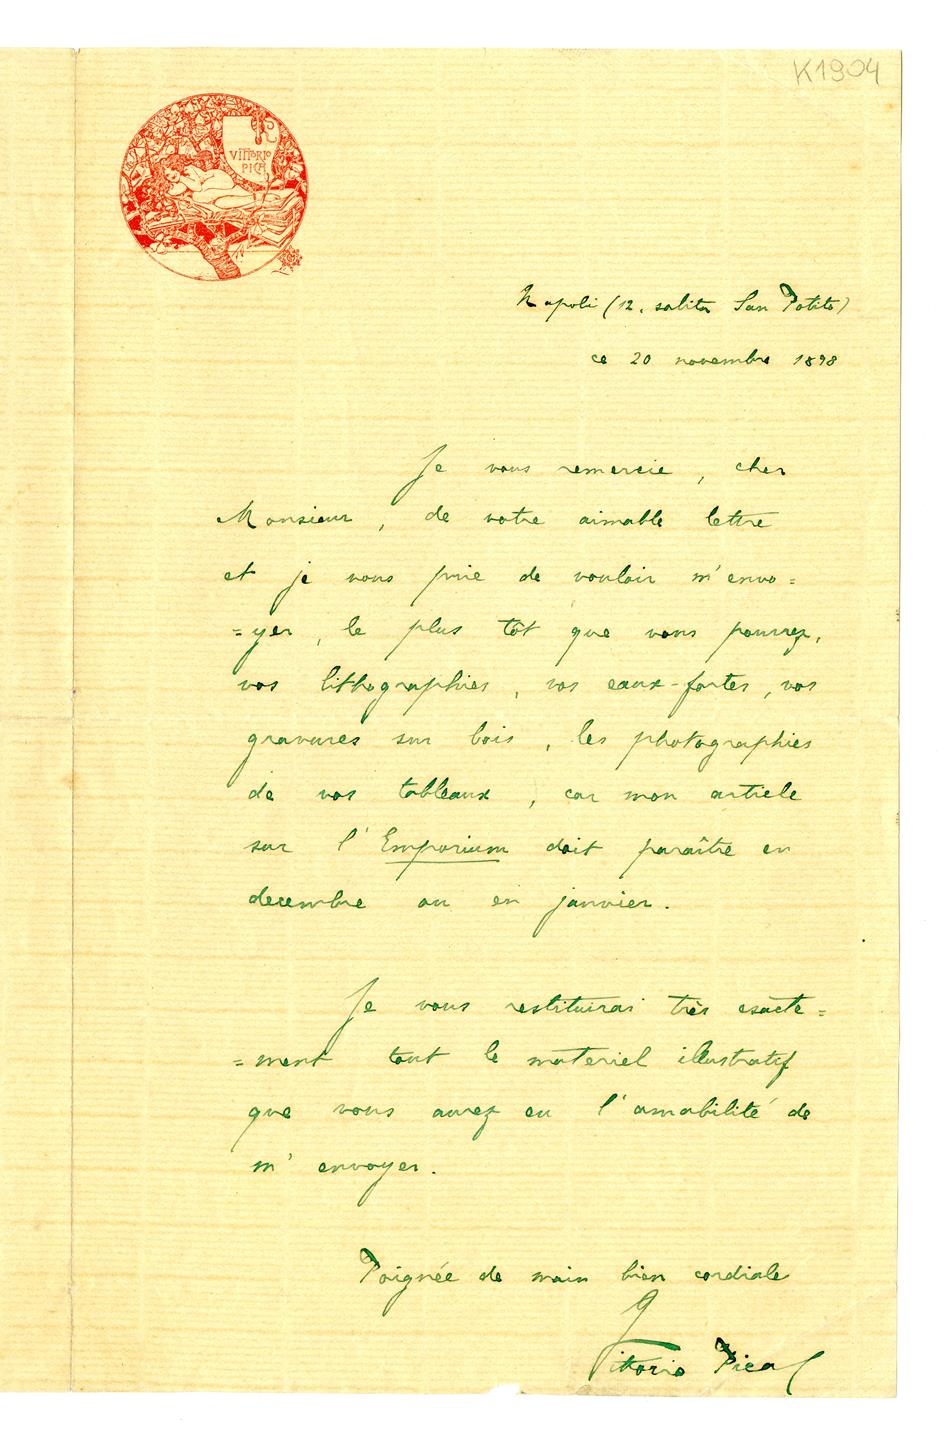 K1904
VITTORIO
PICA
Napoli (12, salita San Potito)
ce 20 novembre 1898
Je vous remercie, cher
Monsieur, de votre aimable lettre
et je vous prie de vouloir m'envo=
=yer, le plus tôt que vous pourrez,
vos lithographies, vos eaux-fortes, vos
gravures sur bois, les photographies
de vos tableaux, car mon article
sur l'Emporium doit paraître en
decembre ou en janvier.
Je vous restituirai très exacte=
=ment tout le materiel illustratif
que vous aurez eu l'amabilité de
m'envoyer.
Poignée de main bien cordiale
Vittorio Pica